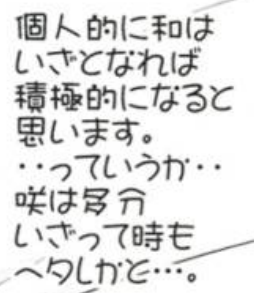 個人的に和は
いざとなれば
積極的になると
思います。
‥っていうか‥
咲は多分
いざって時も
ヘタレかと…。